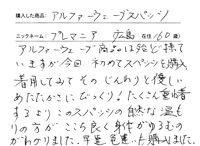 購入した商品：アルファーウェーブスパッツ
ニックネーム：プレマニア 広島 在住（60歳）
アルファーウェーブ商品は殆ど持て
いますが今回、初めてスパッツを購入
着用してみてそのじんわりと優しい
あたたかさにびっくり！たくさん重ね着
するよりこのスパッツの自然な温も
りの方がここち良く身体がゆるむの
がわかりました。早速色違いも購入しました。